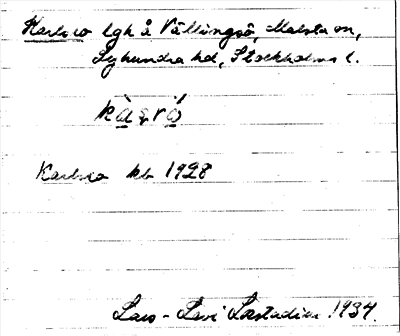 Karlsro lgh å Vällingsö, Malsta sn,
Lyhundra hd, Stockholms l.
kàʂró
Karlsro kb 1928
Lars-Levi Læstadius 1934.